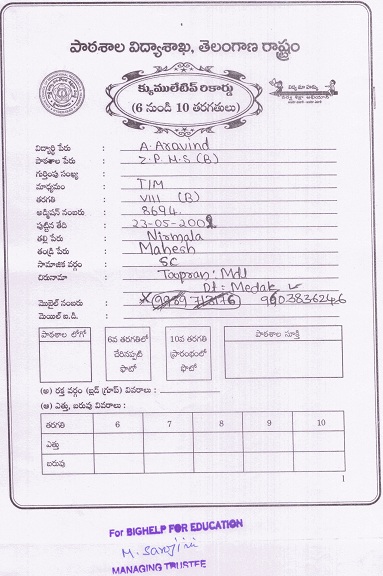 పాఠశాల విద్యాశాఖ, తెలంగాణ రాష్ట్రం
క్యుములేటివ్ రికార్డు
(6 నుండి 10 తరగతులు)
విద్యార్థి పేరు : A. Aravind
పాఠశాల పేరు : Z.P.H.S (B)
గుర్తింపు సంఖ్య :
మాధ్యమం : T/M
తరగతి : VIII (B)
అడ్మిషన్ నంబరు : 8694
పుట్టిన తేది : 23-05-200
తల్లి పేరు : Nirmala
తండ్రి పేరు : Mahesh
సామాజిక వర్గం : SC
చిరునామా : Toopran: Mdl
Dt: Medak
మొబైల్ నంబరు : 9603836246
మెయిల్ ఐ.డి. :
పాఠశాల లోగో
6వ తరగతి
చేరినప్పటి
ఫొటో
10వ తరగతి
ప్రారంభంలో
ఫొటో
పాఠశాల సూక్తి
(అ) రక్త వర్గం (బ్లడ్ గ్రూప్) వివరాలు :
(ఆ) ఎత్తు, బరువు వివరాలు :
తరగతి 6 7 8 9 10
ఎత్తు
బరువు
1
For BIGHELP FOR EDUCATION
M. Sarojini
MANAGING TRUSTEE